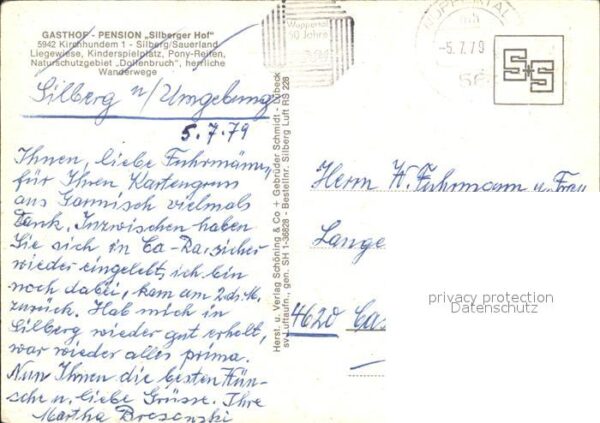 GASTHOF - PENSION „Silberger Hof"
5942 Kirchhundem 1 - Silberg/Sauerland
Liegewiese, Kinderspielplatz, Pony-Reiten,
Naturschutzgebiet „Dollenbruch", herrliche
Wanderwege
Silberg u/Umgebung
5.7.79
Ihnen, liebe Fuhrmänn's
für Ihren Kartengruss
aus Garmisch vielmals
Dank. Inzwischen haben
Sie sich in Ca-Ra. sicher
wieder eingelebt, ich bin
noch dabei, kam am 2.ds.M.
zurück. Hab mich in
Silberg wieder gut erholt,
war wieder alles prima.
Nun Ihnen die besten Wün-
sche u. liebe Grüsse. Ihre
Martha
Herst. u. Verlag Schöning & Co + Gebrüder Schmidt - Lübeck
sv Luftaufn., gen. SH 1-36828 - Bestellnr. Silberg Luft RS 228
Wuppertal
50 Jahre
WUPPERTAL
-5.7.79
S+S
Herrn W. Fuhrmann u. Frau
Lange
4620 Cas
privacy protection
Datenschutz